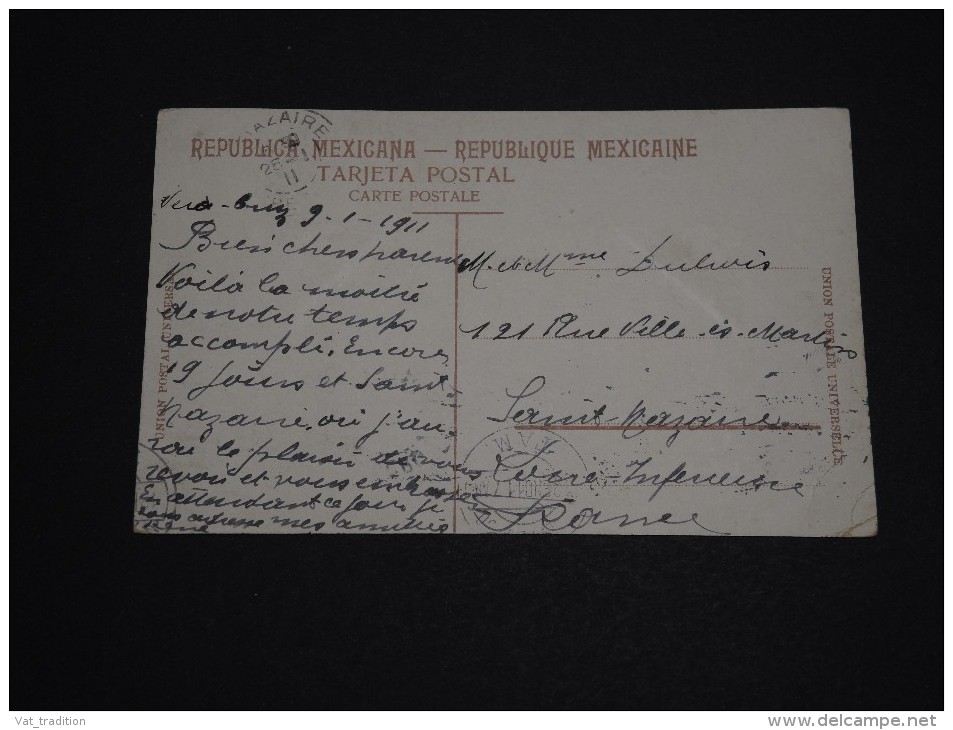 REPUBLICA MEXICANA — REPUBLIQUE MEXICAINE
TARJETA POSTAL
CARTE POSTALE
NAZAIRE
11
UNION POSTAL UNIVERSAL
UNION POSTALE UNIVERSELLE
Vera-Cruz 9-1-1911
Bien chers parents
Voilà la moitié
de notre temps
accompli. Encore
19 jours et Saint
Nazaire, où j'au-
rai le plaisir de vous
revoir et vous embrasser
En attendant ce jour je
vous adresse mes amitiés
M. et Mme
121 Rue Ville-ès-Martin
Saint Nazaire
Loire-Inferieure
France
Vat_tradition
delcampe.net